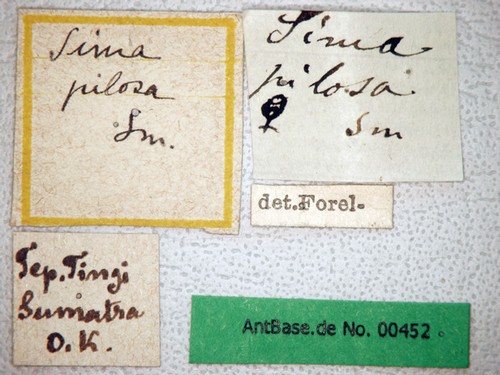 Sima
pilosa
Sm.
Sima
pilosa
☿ Sm
det.Forel-
Tep. Tingi
Sumatra
O.K.
AntBase.de No. 00452